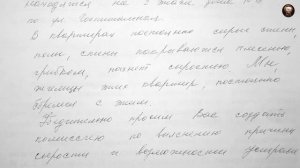 находятся на 1 этаже, дома №
по ул. Гостиничной.
В квартирах постоянно сырые стены,
полы, стены покрываются плесенью,
грибком, пахнет сыростью. Мы,
жильцы этих квартир, постоянно
боремся с этим.
Убедительно просим Вас создать
комиссию по выяснению причины
сырости и возможности устране